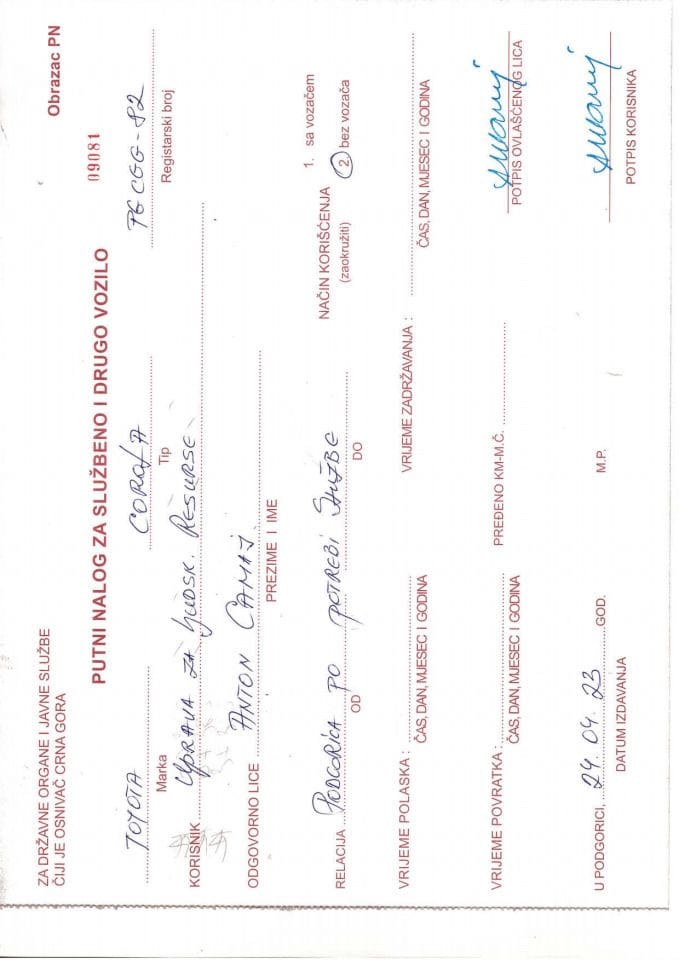 Obrazac PN
ZA DRŽAVNE ORGANE I JAVNE SLUŽBE
ČIJI JE OSNIVAČ CRNA GORA
09081
PUTNI NALOG ZA SLUŽBENO I DRUGO VOZILO
TOYOTA COROLA PG CGG-82
Marka Tip Registarski broj
KORISNIK UPRAVA ZA LJUDSK. RESURSE
ODGOVORNO LICE ANTON CAMAJ
PREZIME I IME
NAČIN KORIŠĆENJA 1. sa vozačem
(zaokružiti) 2. bez vozača
RELACIJA PODGORICA PO POTREBI SLUŽBE
OD DO
VRIJEME POLASKA : VRIJEME ZADRŽAVANJA :
ČAS, DAN, MJESEC I GODINA ČAS, DAN, MJESEC I GODINA
VRIJEME POVRATKA : PREĐENO KM-M.Č.
ČAS, DAN, MJESEC I GODINA POTPIS OVLAŠĆENOG LICA
U PODGORICI, 24.04.23 GOD. M.P.
DATUM IZDAVANJA POTPIS KORISNIKA